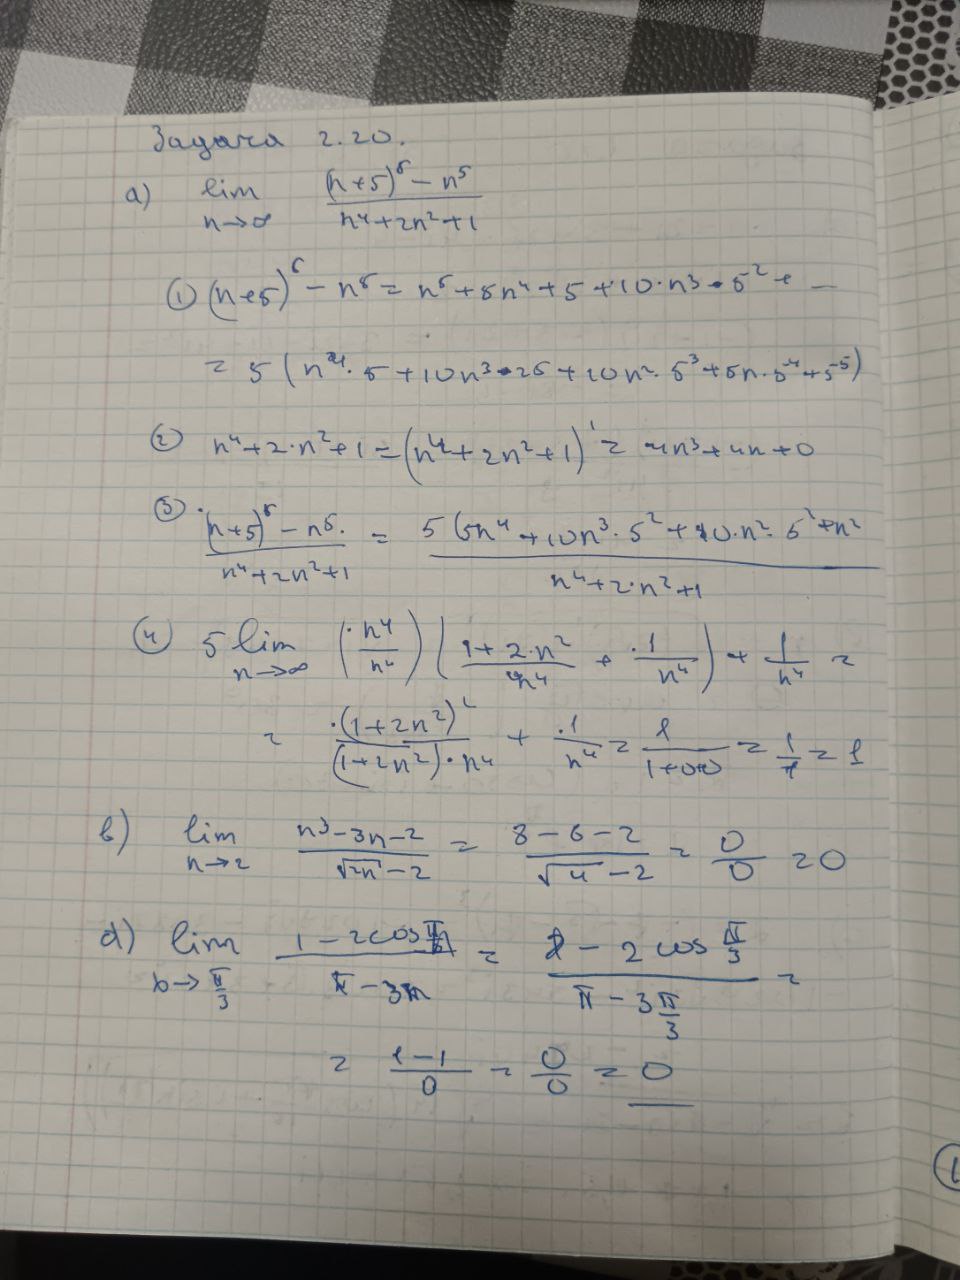 Задача 2.20.
a) lim n→∞ ((n+5)^5 − n^5)/(n^4+2n^2+1)
① (n+5)^5 − n^5 = n^5 + 5n^4 + 5 + 10·n^3·5^2 + ...
= 5 (n^4·5 + 10n^3·25 + 10n^2·5^3 + 5n·5^4 + 5^5)
② n^4+2·n^2+1 = (n^4+2n^2+1)' = 4n^3+4n+0
③ ((n+5)^5 − n^5)/(n^4+2n^2+1) = 5(5n^4+10n^3·5^2+10·n^2·5^2+n^2/(n^4+2·n^2+1)
④ 5 lim n→∞ (n^4/n^4)((1+2·n^2)/n^4 + 1/n^4) + 1/n^4 =
= (1+2n^2)^2/((1+2n^2)·n^4) + 1/n^4 = 1/(1+00) = 1/1 = 1
b) lim n→2 (n^3−3n−2)/(√2n −2) = (8−6−2)/(√4 −2) = 0/0 = 0
d) lim b→π/3 (1−2cos)/(π−3n) = (1−2cos π/3)/(π−3 π/3) =
= (1−1)/0 = 0/0 = 0